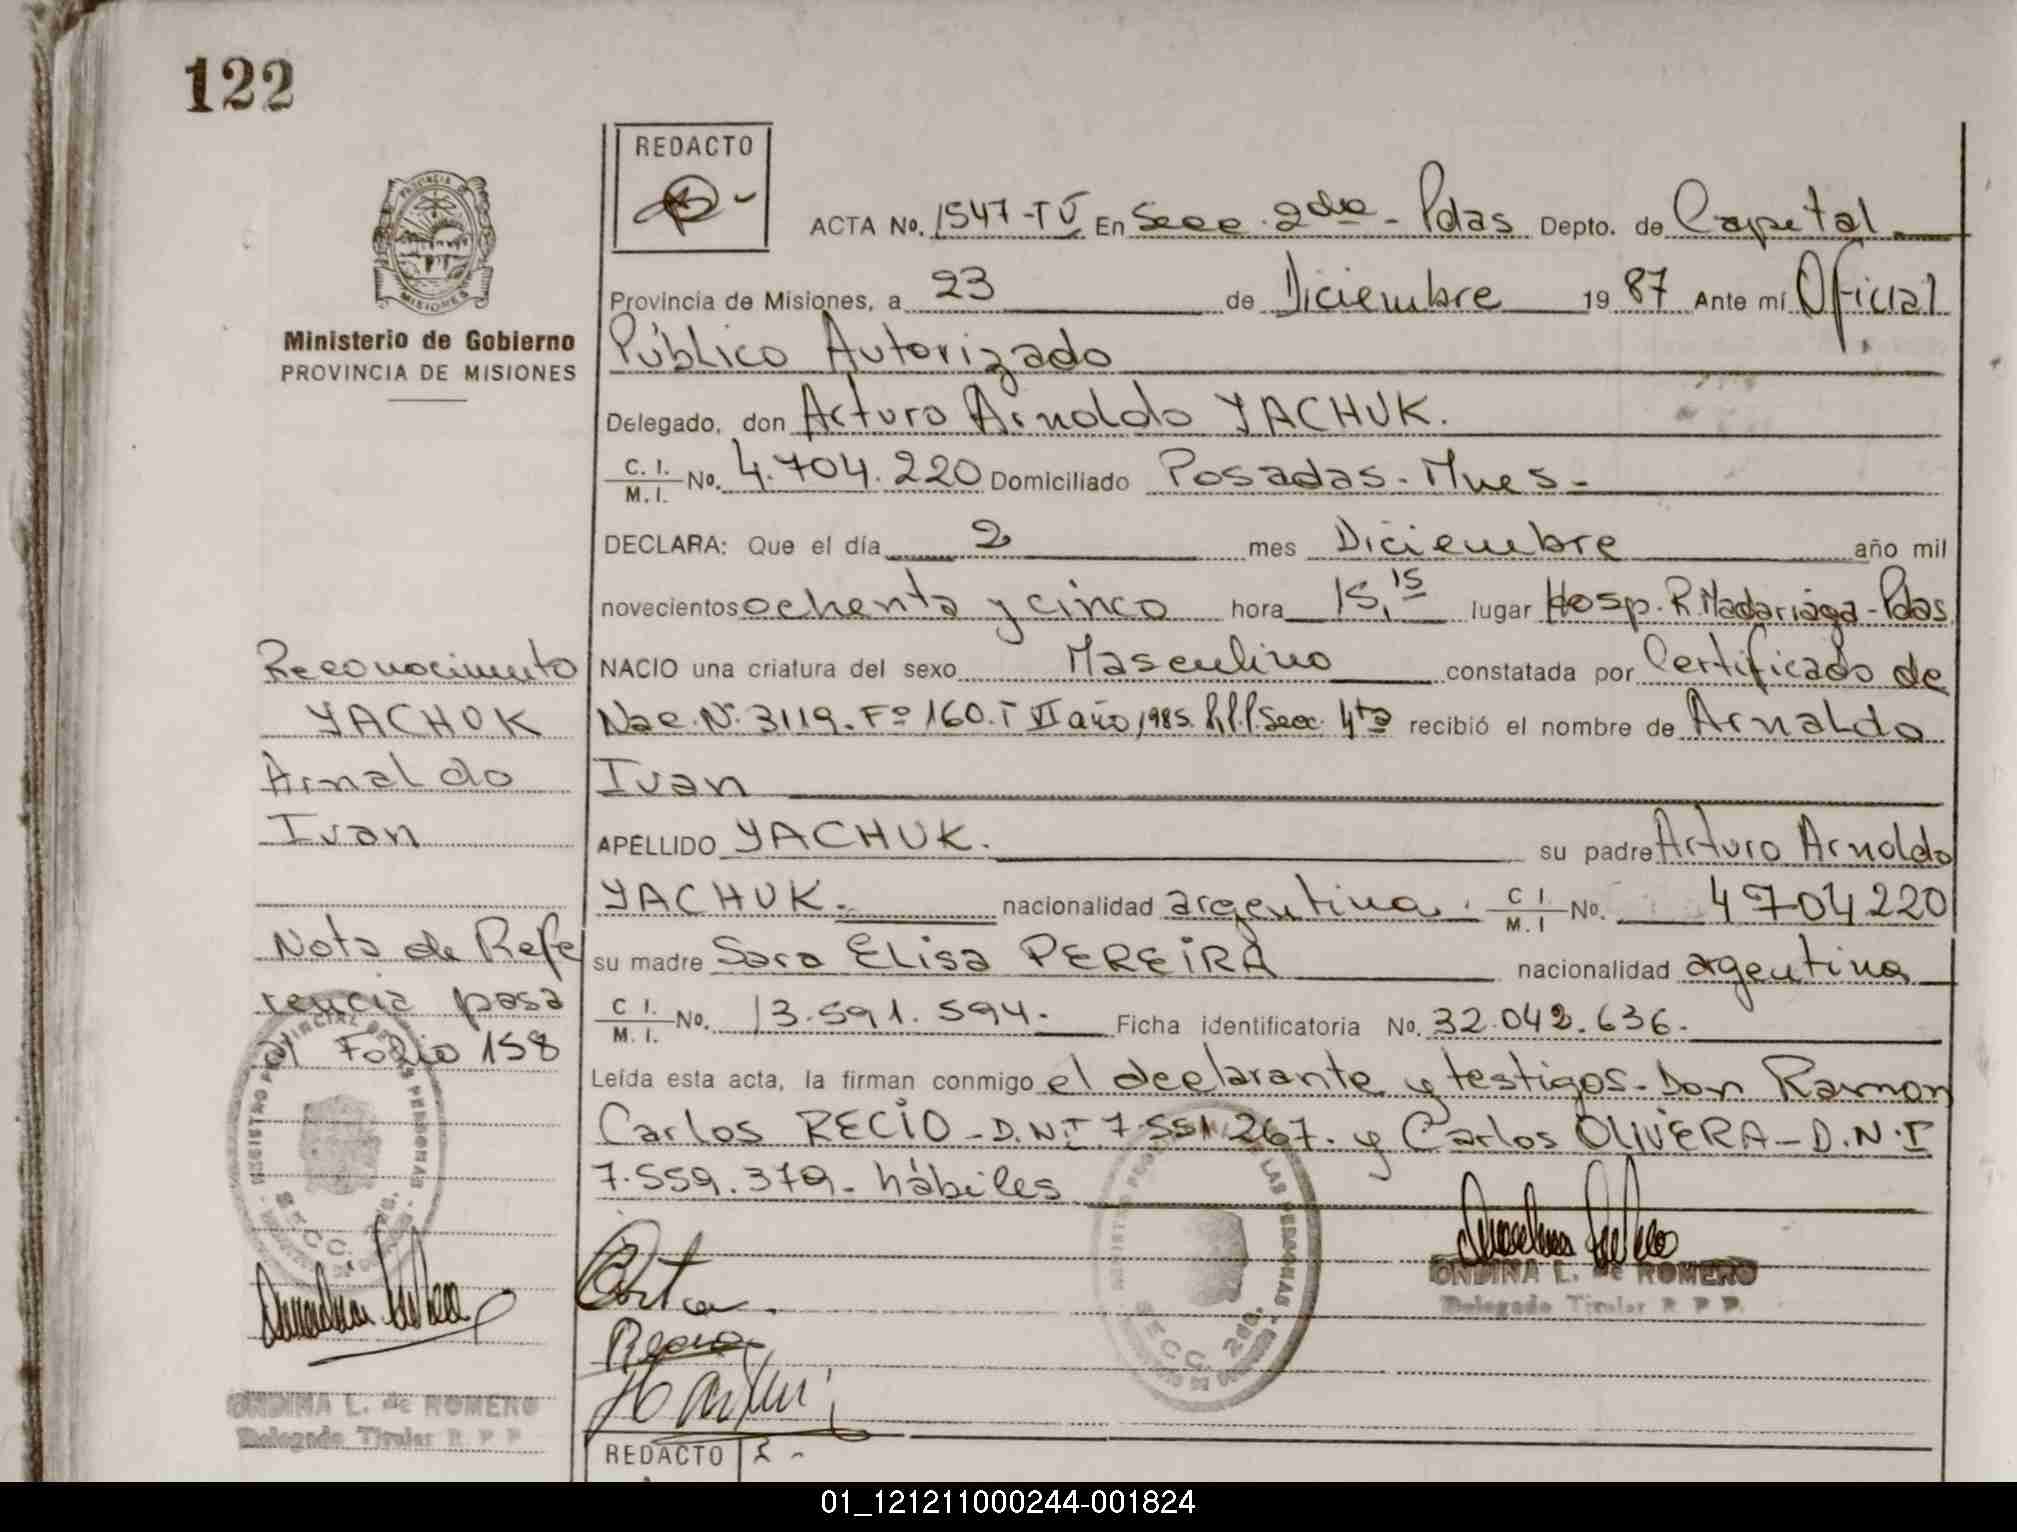 122
REDACTO
ACTA No. 1547-T V En Secc. 2da - Pdas Depto. de Capital
Provincia de Misiones, a 23 de Diciembre 19 87 Ante mí Oficial
Público Autorizado
Delegado, don Arturo Arnoldo YACHUK.
C. I. M. I. No. 4.704.220 Domiciliado Posadas - Mnes -
DECLARA: Que el día 2 mes Diciembre año mil
novecientos ochenta y cinco hora 15,15 lugar Hosp. R. Madariaga - Pdas
NACIO una criatura del sexo Masculino constatada por Certificado de
Nac. Nº 3119. Fº 160. T VI año 1985. R.P.P. Secc. 4ta recibió el nombre de Arnaldo
Ivan
APELLIDO YACHUK. su padre Arturo Arnoldo
YACHUK. nacionalidad argentina. C I. M. I No. 4704220
su madre Sara Elisa PEREIRA nacionalidad argentina
C I. M. I. No. 13.591.594. Ficha identificatoria No. 32.042.636.
Leída esta acta, la firman conmigo el declarante y testigos - Don Ramon
Carlos RECIO - D.N.I 7.551.267. y Carlos OLIVERA - D.N.I
7.559.379 - hábiles
PROVINCIA DE
MISIONES
Ministerio de Gobierno
PROVINCIA DE MISIONES
Reconocimiento
YACHUK
Arnaldo
Ivan
Nota de Refe
rencia pasa
al Folio 158
REGISTRO PROVINCIAL DE LAS PERSONAS
SECC. 2da.
ONDINA L. de ROMERO
Delegado Titular R P P
REGISTRO PROVINCIAL DE LAS PERSONAS
SECC. 2da.
ONDINA L. de ROMERO
Delegado Titular R P P.
REDACTO
01_121211000244-001824